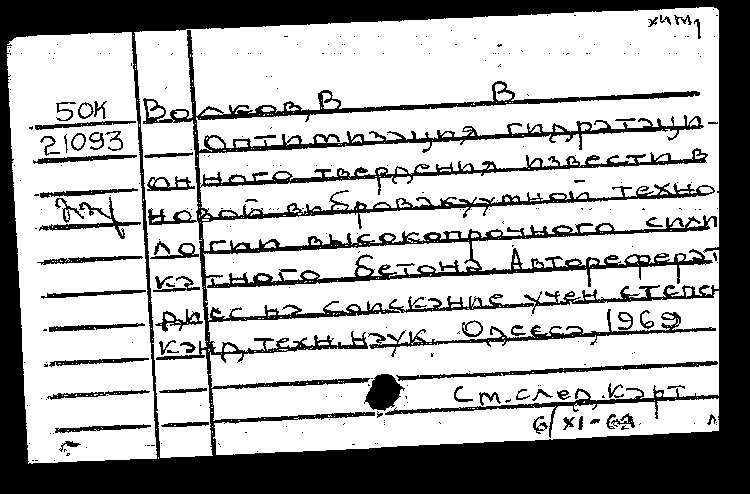 хим
50К Волков, В В
21093 Оптимизация гидратаци-
онного твердения извести в
новой вибровакуумной техно
логии высокопрочного сили
катного бетона. Автореферат
дисс на соискание учен степен
канд. техн. наук. Одесса, 1969
См. след. карт
6/XI-69